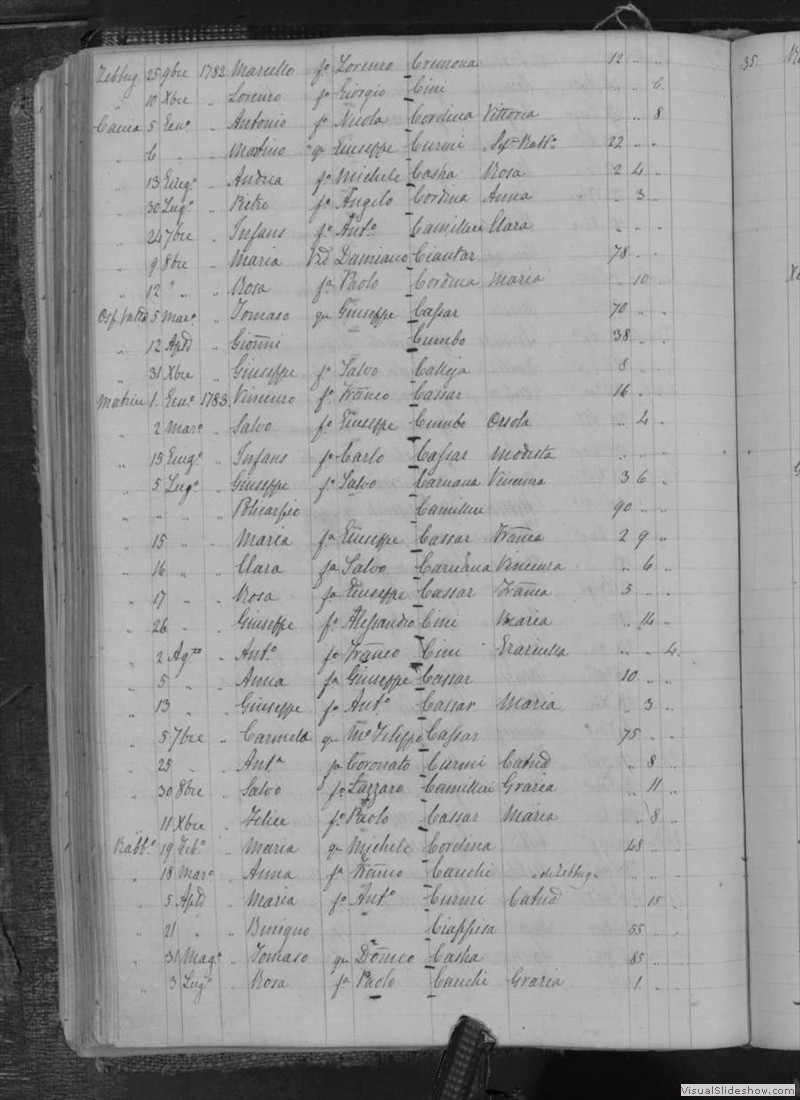 Zebbug 25 9bre 1782 Marcello fo Lorenzo Cremona 12 " "
" 10 Xbre " Lorenzo fo Giorgio Cini " " 6
Caccia 5 Eno " Antonio fo Nicola Cordina Vittoria " " 8
" 6 " " Martino qm Giuseppe Curmi 22 " "
" 13 Giugo " Andrea fo Michele Casha Rosa 2 4 "
" 30 Lugo " Pietro fo Angelo Cordina Anna " 3 "
" 24 7bre " Infans fo Anto Camilleri Clara " " "
" 9 8bre " Maria Ved Damiano Ciantar 78 " "
" 12 " " Rosa fa Paolo Cordina Maria " 10 "
5 Maro " Tomaso qm Giuseppe Cassar 70 " "
" 12 Aple " Gionni Cumbo 38 " "
" 31 Xbre " Giuseppe fo Salvo Calleja 8 "
Matrice 1. Eno 1783 Vincenzo fo Franco Cassar 16 "
" 2 Maro " Salvo fo Giuseppe Cumbo Orsola " 4 "
" 15 Giugo " Infans fo Carlo Cassar Modesta " " "
" 5 Lugo " Giuseppe fo Salvo Caruana Vincenza 3 6 "
" " " " Policarpio Camilleri 90 " "
" 15 " " Maria fa Giuseppe Cassar Franca 2 9 "
" 16 " " Clara fa Salvo Caruana Vincenza " 6 "
" 17 " " Rosa fa Giuseppe Cassar Franca 3 " "
" 26 " " Giuseppe fo Alessandro Cini Maria " 14 "
" 2 Agto " Anto fo Franco Cini Graziella " " 4
" 5 " " Anna fa Giuseppe Cassar 10 " "
" 13 " " Giuseppe fo Anto Cassar Maria " 3 "
" 5 7bre " Carmela qm Mo Filippo Cassar 75 " "
" 25 " " Anta fa Coronato Curmi Catnd " 8 "
" 30 8bre " Salvo fo Lazzaro Camilleri Grazia " 11 "
" 11 Xbre " Felice fo Paolo Cassar Maria " 8 "
Rabbo 19 Febo " Maria qm Michele Cordina 48 " "
" 18 Maro " Anna fa Franco Cauchi di Zebbug " " "
" 5 Aple " Maria fa Anto Curmi Catnd " 15 "
" 21 " " Benigno " 55 " "
" 31 Mago " Tomaso qm Domco Casha 85 " "
" 3 Lugo " Rosa fa Paolo Cauchi Grazia 1 " "
35.
VisualSlideshow.com